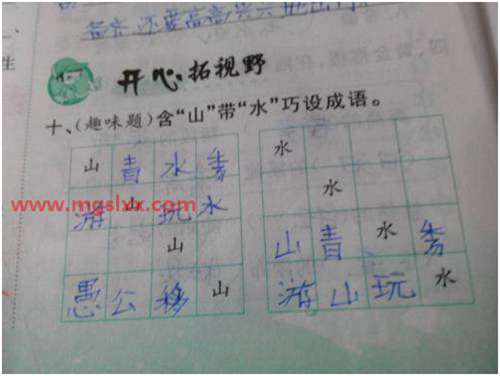 开心拓视野
十、(趣味题)含“山”带“水”巧设成语。
山青水秀
游山玩水
山
愚公移山
水
水
山青水秀
游山玩水
www.mgslxx.com
生